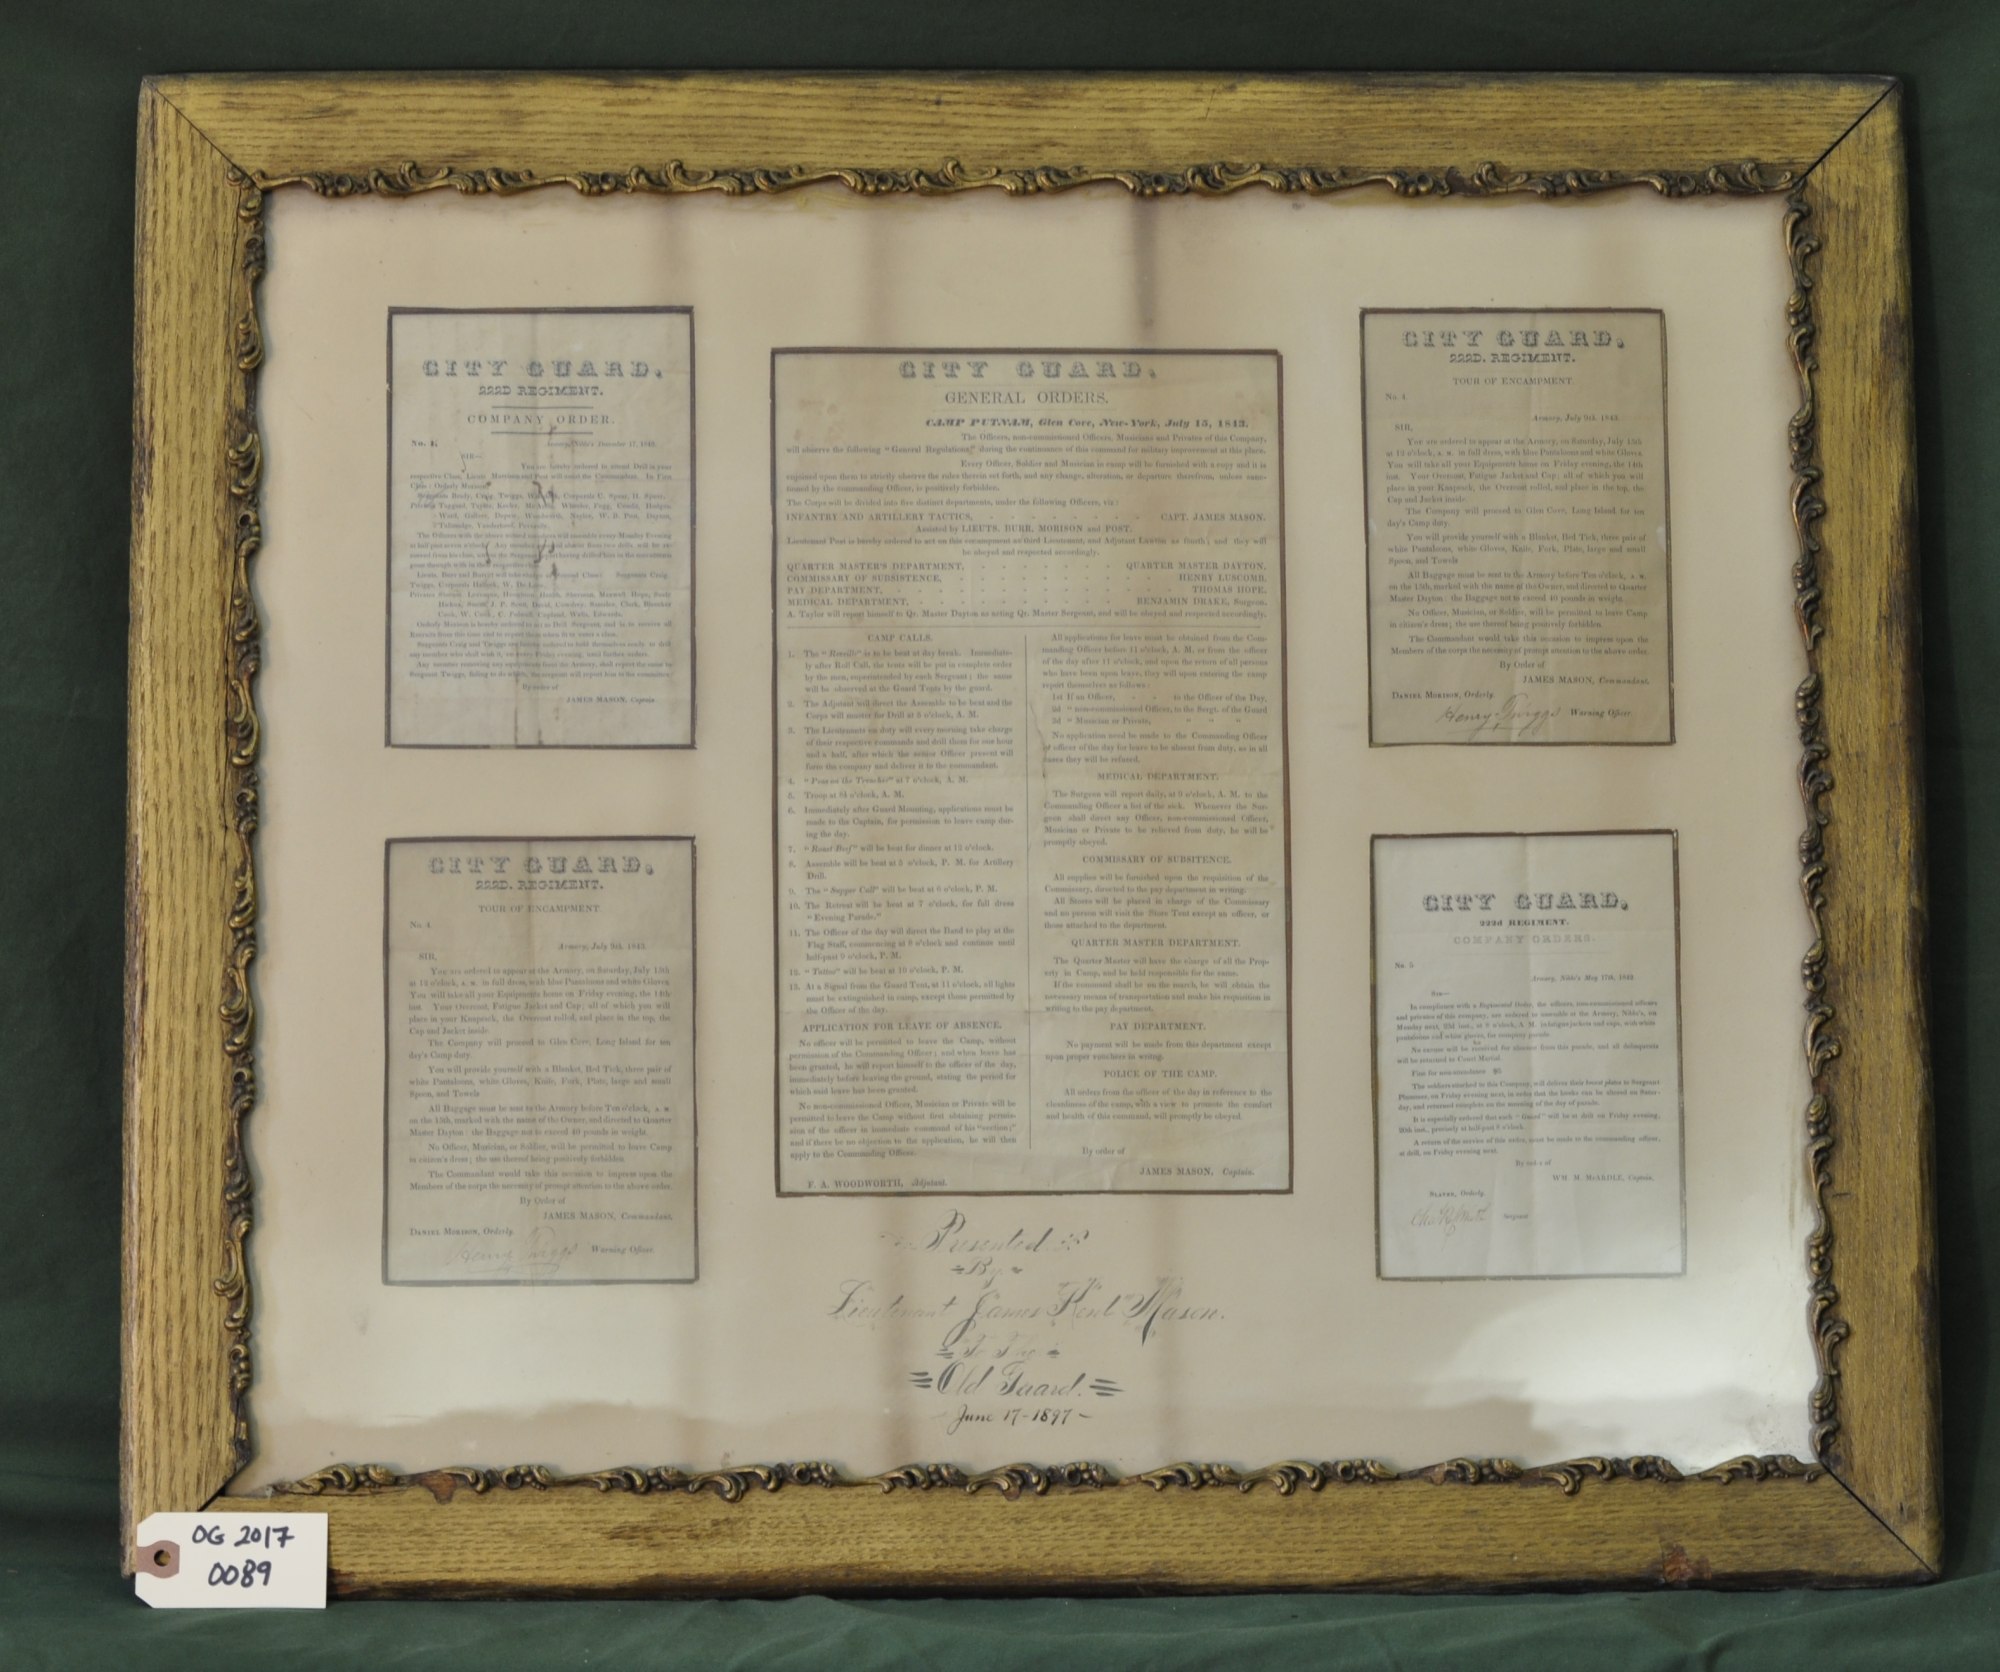 CITY GUARD,
222D REGIMENT.
COMPANY ORDER.
No. 1.
Armory, Niblo's December 17, 1840.
SIR—
You are hereby ordered to attend Drill in your
respective Class,
Class: Orderly Morison
Sergeants Brady, Craig, Twiggs,
The Officers with the above named members will assemble every Monday Evening
Orderly Morison is hereby ordered to act as Drill Sergeant, and is to receive all
Recruits from this time and to report them when fit to enter a class.
Sergeants Craig and Twiggs are hereby ordered to hold themselves ready to drill
any member who shall wish it, on every Friday evening, until further orders.
Any member removing any equipments from the Armory, shall report the same to
Sergeant Twiggs, failing to do which, the sergeant will report him to the committee.
By order of
JAMES MASON, Captain.
CITY GUARD,
222D. REGIMENT.
TOUR OF ENCAMPMENT.
No. 4.
Armory, July 9th, 1843.
SIR,
You are ordered to appear at the Armory, on Saturday, July 15th
at 12 o'clock, A. M. in full dress, with blue Pantaloons and white Gloves.
You will take all your Equipments home on Friday evening, the 14th
inst. Your Overcoat, Fatigue Jacket and Cap; all of which you will
place in your Knapsack, the Overcoat rolled, and place in the top, the
Cap and Jacket inside.
The Company will proceed to Glen Cove, Long Island for ten
day's Camp duty.
You will provide yourself with a Blanket, Bed Tick, three pair of
white Pantaloons, white Gloves, Knife, Fork, Plate, large and small
Spoon, and Towels
All Baggage must be sent to the Armory before Ten o'clock, A. M.
on the 15th, marked with the name of the Owner, and directed to Quarter
Master Dayton: the Baggage not to exceed 40 pounds in weight.
No Officer, Musician, or Soldier, will be permitted to leave Camp
in citizen's dress; the use thereof being positively forbidden.
The Commandant would take this occasion to impress upon the
Members of the corps the necessity of prompt attention to the above order.
By Order of
JAMES MASON, Commandant.
DANIEL MORISON, Orderly.
Henry Twiggs Warning Officer.
CITY GUARD.
GENERAL ORDERS.
CAMP PUTNAM, Glen Cove, New-York, July 15, 1843.
The Officers, non-commissioned Officers, Musicians and Privates of this Company,
will observe the following "General Regulations," during the continuance of this command for military improvement at this place.
Every Officer, Soldier and Musician in camp will be furnished with a copy and it is
enjoined upon them to strictly observe the rules therein set forth, and any change, alteration, or departure therefrom, unless sanc-
tioned by the commanding Officer, is positively forbidden.
The Corps will be divided into five distinct departments, under the following Officers, viz:
INFANTRY AND ARTILLERY TACTICS, - - - - - - - - CAPT. JAMES MASON.
Assisted by LIEUTS. BURR, MORISON and POST.
Lieutenant Post is hereby ordered to act on this encampment as third Lieutenant, and Adjutant Lawton as fourth; and they will
be obeyed and respected accordingly.
QUARTER MASTER'S DEPARTMENT, - - - - - - - - QUARTER MASTER DAYTON.
COMMISSARY OF SUBSISTENCE, - - - - - - - - HENRY LUSCOMB.
PAY DEPARTMENT, - - - - - - - - THOMAS HOPE.
MEDICAL DEPARTMENT, - - - - - - - - BENJAMIN DRAKE, Surgeon.
A. Taylor will report himself to Qr. Master Dayton as acting Qr. Master Sergeant, and will be obeyed and respected accordingly.
CAMP CALLS.
1. The "Reveille" is to be beat at day break. Immediate-
ly after Roll Call, the tents will be put in complete order
by the men, superintended by each Sergeant; the same
will be observed at the Guard Tents by the guard.
2. The Adjutant will direct the Assemble to be beat and the
Corps will muster for Drill at 5 o'clock, A. M.
3. The Lieutenants on duty will every morning take charge
of their respective commands and drill them for one hour
and a half, after which the senior Officer present will
form the company and deliver it to the commandant.
4. "Peas on the Trencher" at 7 o'clock, A. M.
5. Troop at 8½ o'clock, A. M.
6. Immediately after Guard Mounting, applications must be
made to the Captain, for permission to leave camp dur-
ing the day.
7. "Roast Beef" will be beat for dinner at 12 o'clock.
8. Assemble will be beat at 5 o'clock, P. M. for Artillery
Drill.
9. The "Supper Call" will be beat at 6 o'clock, P. M.
10. The Retreat will be beat at 7 o'clock, for full dress
"Evening Parade."
11. The Officer of the day will direct the Band to play at the
Flag Staff, commencing at 8 o'clock and continue until
half-past 9 o'clock, P. M.
12. "Tattoo" will be beat at 10 o'clock, P. M.
13. At a Signal from the Guard Tent, at 11 o'clock, all lights
must be extinguished in camp, except those permitted by
the Officer of the day.
APPLICATION FOR LEAVE OF ABSENCE.
No officer will be permitted to leave the Camp, without
permission of the Commanding Officer; and when leave has
been granted, he will report himself to the officer of the day,
immediately before leaving the ground, stating the period for
which said leave has been granted.
No non-commissioned Officer, Musician or Private will be
permitted to leave the Camp without first obtaining permis-
sion of the officer in immediate command of his "section;"
and if there be no objection to the application, he will then
apply to the Commanding Officer.
F. A. WOODWORTH, Adjutant.
All applications for leave must be obtained from the Com-
manding Officer before 11 o'clock, A. M. or from the officer
of the day after 11 o'clock, and upon the return of all persons
who have been upon leave, they will upon entering the camp
report themselves as follows:
1st If an Officer, - - to the Officer of the Day,
2d " non-commissioned Officer, to the Sergt. of the Guard
3d " Musician or Private, " " "
No application need be made to the Commanding Officer
or officer of the day for leave to be absent from duty, as in all
cases they will be refused.
MEDICAL DEPARTMENT.
The Surgeon will report daily, at 9 o'clock, A. M. to the
Commanding Officer a list of the sick. Whenever the Sur-
geon shall direct any Officer, non-commissioned Officer,
Musician or Private to be relieved from duty, he will be
promptly obeyed.
COMMISSARY OF SUBSITENCE.
All supplies will be furnished upon the requisition of the
Commissary, directed to the pay department in writing.
All Stores will be placed in charge of the Commissary
and no person will visit the Store Tent except an officer, or
those attached to the department.
QUARTER MASTER DEPARTMENT.
The Quarter Master will have the charge of all the Prop-
erty in Camp, and be held responsible for the same.
If the command shall be on the march, he will obtain the
necessary means of transportation and make his requisition in
writing to the pay department.
PAY DEPARTMENT.
No payment will be made from this department except
upon proper vouchers in writing.
POLICE OF THE CAMP.
All orders from the officer of the day in reference to the
cleanliness of the camp, with a view to promote the comfort
and health of this command, will promptly be obeyed.
By order of
JAMES MASON, Captain.
Presented
By
Lieutenant James Kent Mason.
To The
Old Guard.
June 17-1897-
CITY GUARD,
222D. REGIMENT.
TOUR OF ENCAMPMENT.
No. 4.
Armory, July 9th, 1843.
SIR,
You are ordered to appear at the Armory, on Saturday, July 15th
at 12 o'clock, A. M. in full dress, with blue Pantaloons and white Gloves.
You will take all your Equipments home on Friday evening, the 14th
inst. Your Overcoat, Fatigue Jacket and Cap; all of which you will
place in your Knapsack, the Overcoat rolled, and place in the top, the
Cap and Jacket inside.
The Company will proceed to Glen Cove, Long Island for ten
day's Camp duty.
You will provide yourself with a Blanket, Bed Tick, three pair of
white Pantaloons, white Gloves, Knife, Fork, Plate, large and small
Spoon, and Towels
All Baggage must be sent to the Armory before Ten o'clock, A. M.
on the 15th, marked with the name of the Owner, and directed to Quarter
Master Dayton: the Baggage not to exceed 40 pounds in weight.
No Officer, Musician, or Soldier, will be permitted to leave Camp
in citizen's dress; the use thereof being positively forbidden.
The Commandant would take this occasion to impress upon the
Members of the corps the necessity of prompt attention to the above order.
By Order of
JAMES MASON, Commandant.
DANIEL MORISON, Orderly.
Henry Twiggs Warning Officer
CITY GUARD,
222d REGIMENT.
COMPANY ORDERS.
No. 5
Armory, Niblo's May 17th, 1842
SIR—
In compliance with a Regimental Order, the officers, non-commissioned officers
and privates of this company, are ordered to assemble at the Armory, Niblo's, on
Monday next, 23d inst., at 8 o'clock, A. M. in fatigue jackets and caps, with white
pantaloons and white gloves, for company parade.
No excuse will be received for absence from this parade, and all delinquents
will be returned to Court Martial.
Fine for non-attendance $5
The soldiers attached to this Company, will deliver their breast plates to Sergeant
Plummer, on Friday evening next, in order that the books can be altered on Satur-
day, and returned complete on the morning of the day of parade.
It is especially ordered that each "Guard" will be at drill on Friday evening,
20th inst., precisely at half-past 8 o'clock.
A return of the service of this order, must be made to the commanding officer,
at drill, on Friday evening next.
By order of
WM. M. McARDLE, Captain,
SLATER, Orderly.
Sergeant
OG 2017
0089